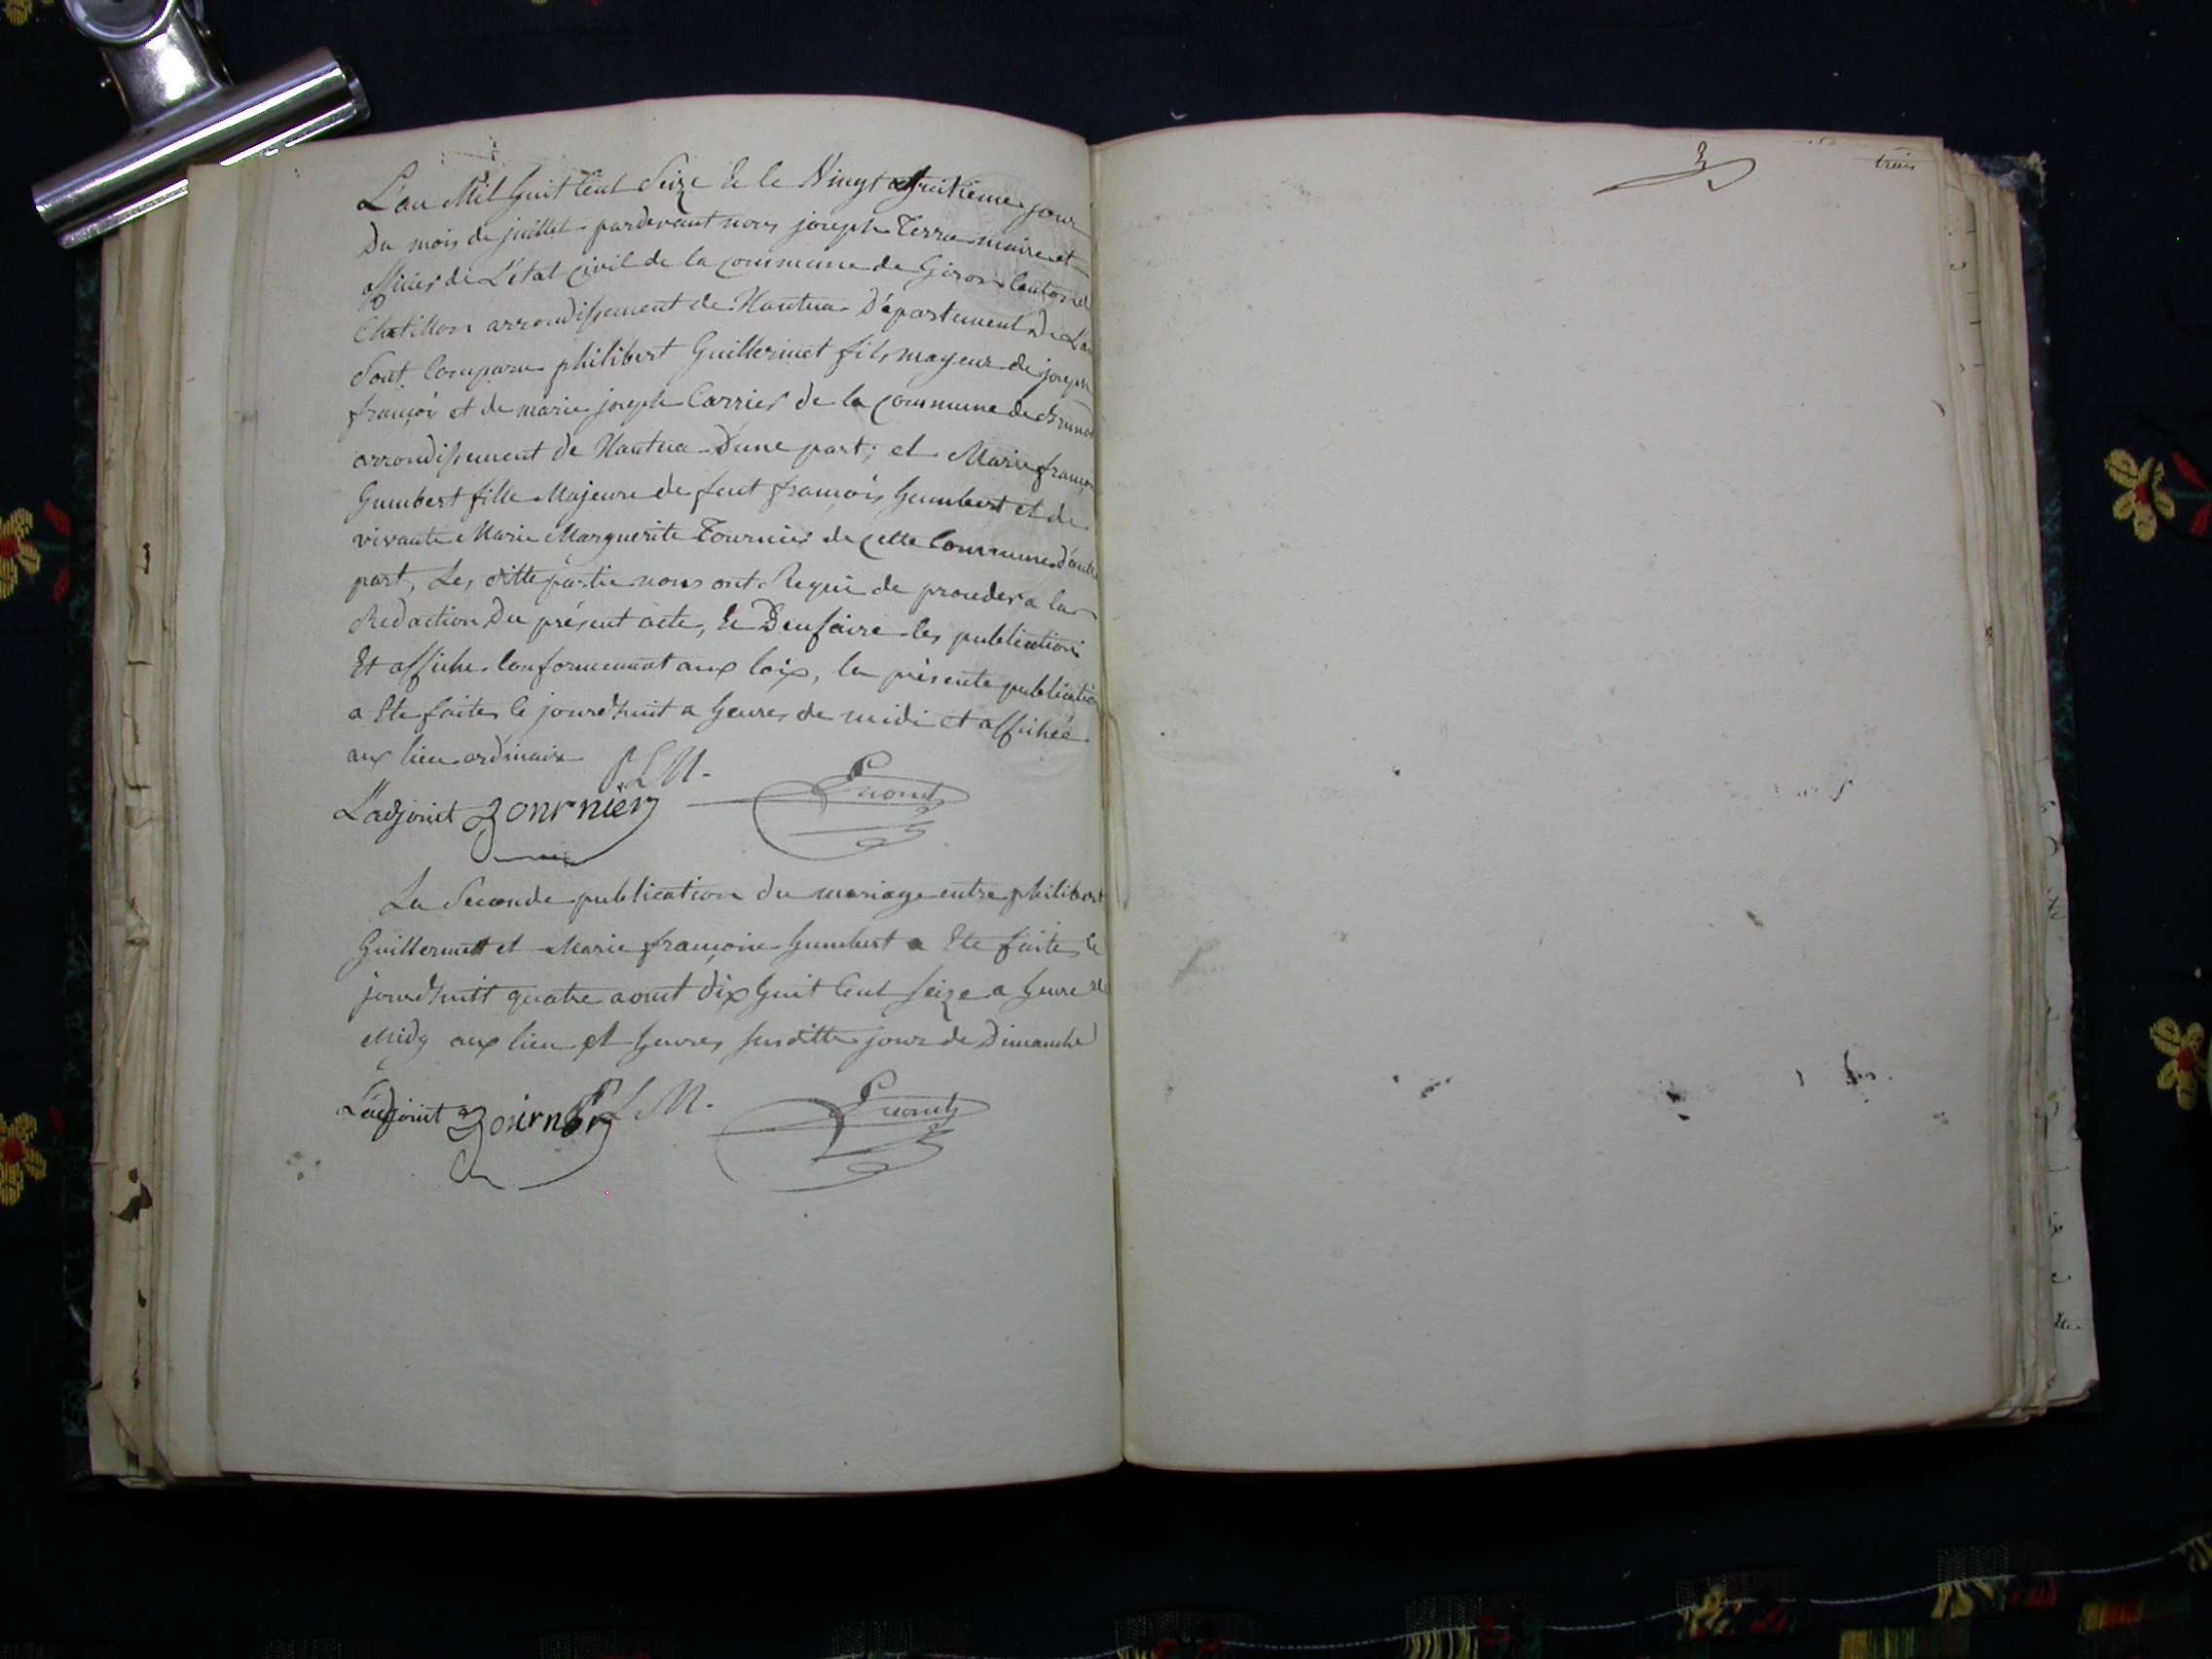 L'an Mil huit Cent Seize & le Vingt huitieme jour
Du mois de juillet pardevant nous joseph Terra maire et
officier de L'état civil de la commune de Giron Canton de
Chatillon arrondissement de Nantua Département De L'ain
Sont Comparu philibert Guillermet fils mayeur de joseph
françoi et de marie joseph Carrier de la commune de
arrondissement de Nantua D'une part; et Marie françoi
humbert fille Majeure de feut françois humbert et de
vivante Marie Marguerite Tournier de cette Commune d'autre
part, Les ditte partie nous ont Requi de proceder a la
Redaction Du présent acte, & D'en faire les publication
Et affiche Conformement aux loix, la présente publication
a Ete faite le jourd'huit a heures de midi et affichée
aux lieu ordinaire P.L.M.
L'adjoint Tournier
La Seconde publication du mariage entre philibert
Guillermet et Marie françoise humbert a Ete faite le
jourd'huit quatre aout dix huit Cent seize a heure de
Midy aux lieu et heures susditte jour de Dimanche
L'adjoint Tournier P.L.M.
3
trois